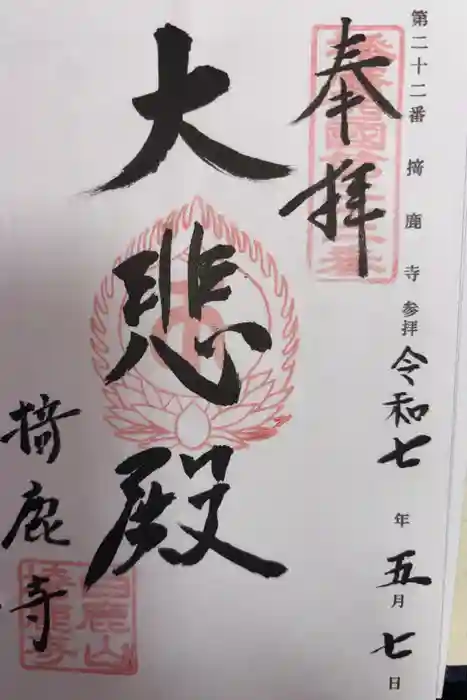 第二十二番 掎鹿寺 参拝 令和七年五月七日
奉拝
大悲殿
掎鹿寺